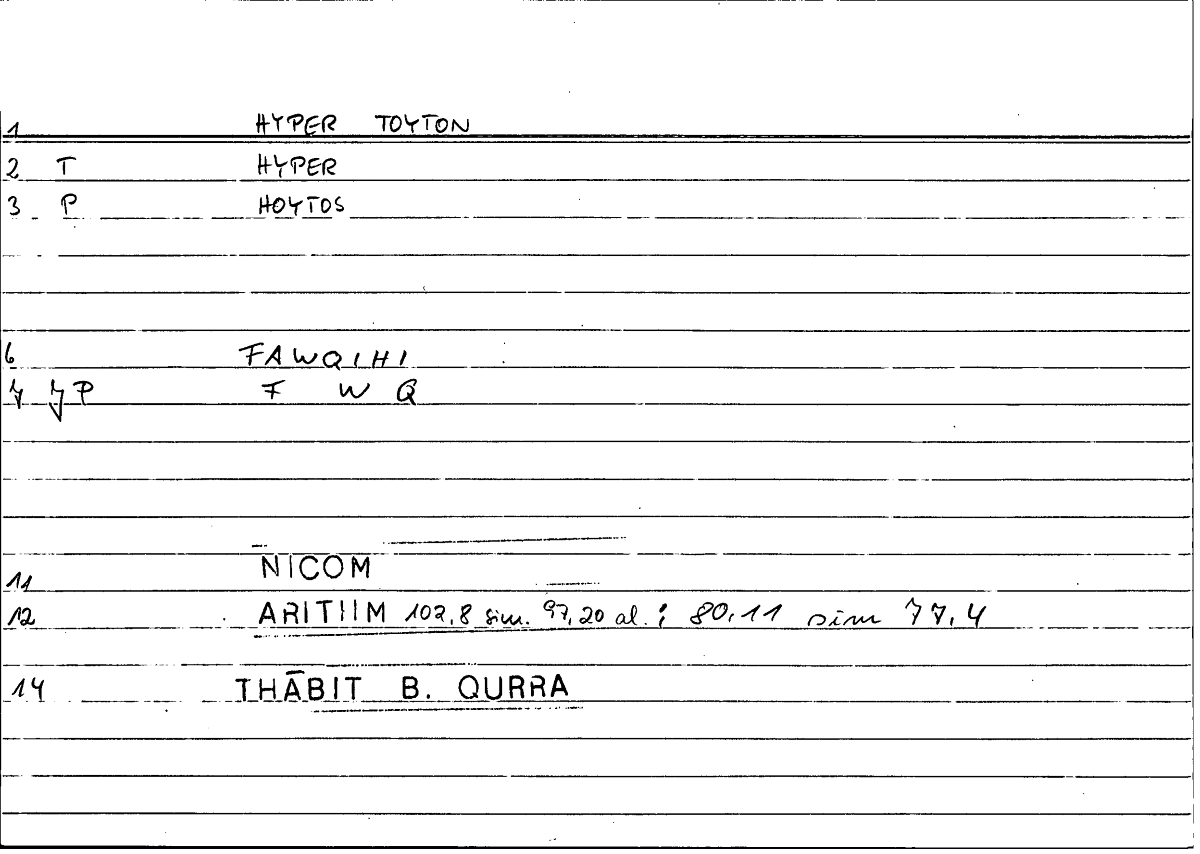 1 HYPER TOYTON
2 T HYPER
3 P HOYTOS
6 FAWQIHI
7 JP F W Q
11 NICOM
12 ARITIIM 102,8 sim. 97,20 al.; 80,11 sim 77,4
14 THĀBIT B. QURRA